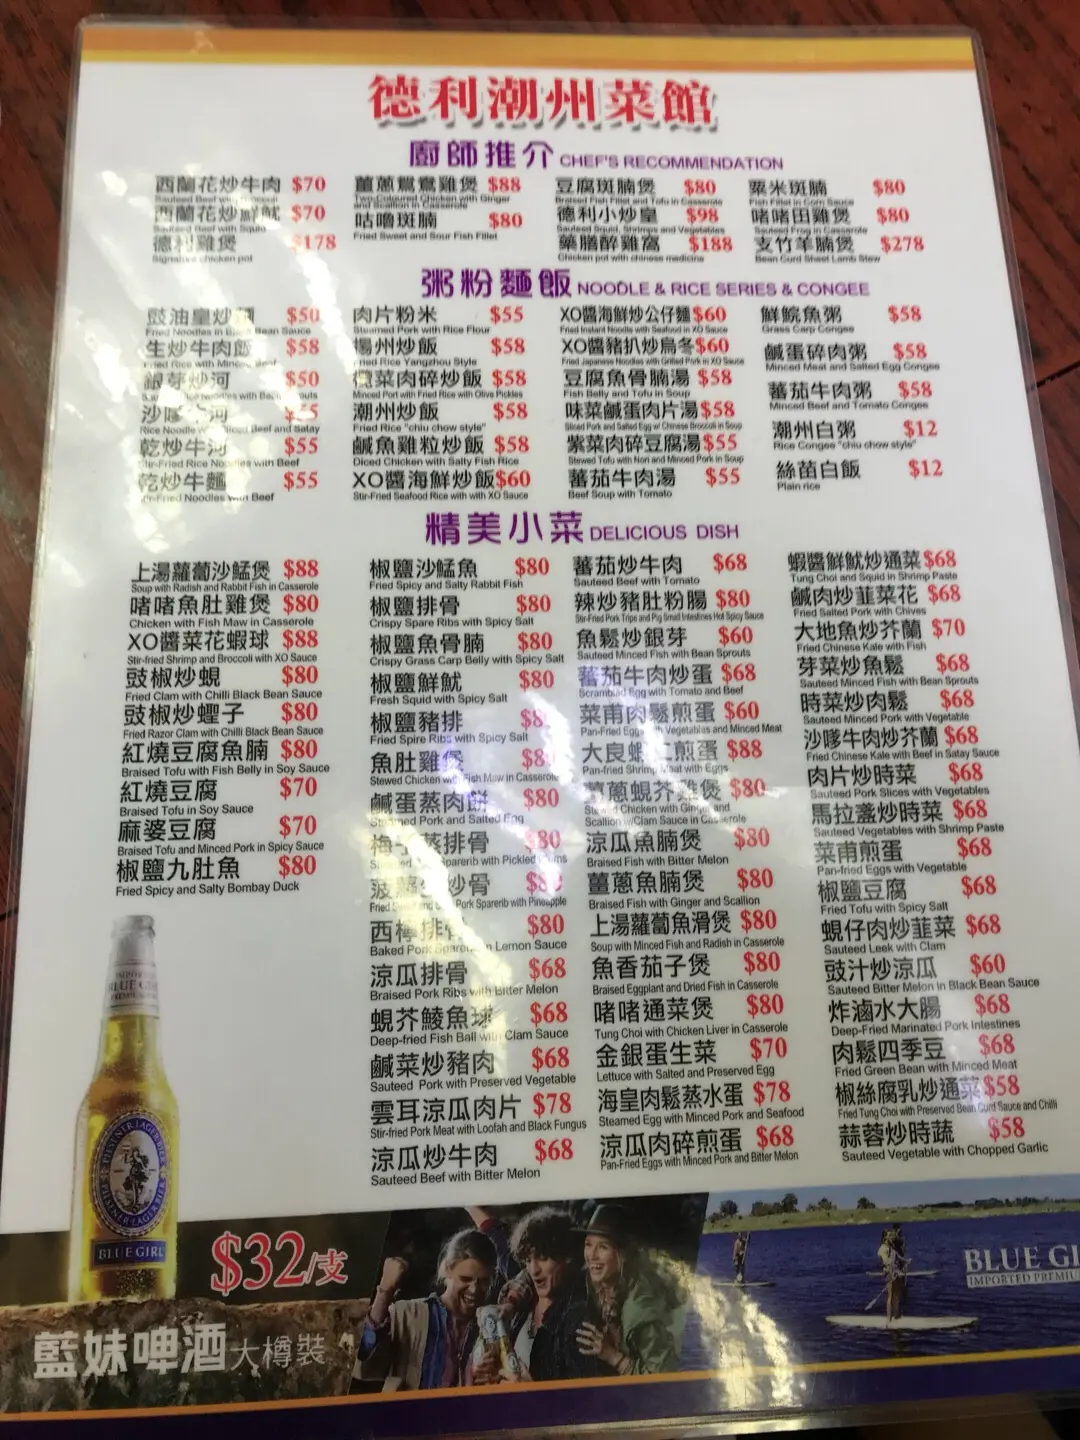 德利潮州菜館
廚師推介 CHEF'S RECOMMENDATION
西蘭花炒牛肉 $70
Sauteed Beef with Broccoli
西蘭花炒鮮魷 $70
Sauteed Beef with Squid
德利雞煲 $178
Signature chicken pot
薑蔥鴛鴦雞煲 $88
Two-Coloured Chicken with Ginger
and Scallion in Casserole
咕嚕斑腩 $80
Fried Sweet and Sour Fish Fillet
豆腐斑腩煲 $80
Braised Fish Fillet and Tofu in Casserole
德利小炒皇 $98
Sauteed Squid, Shrimps and Vegetables
藥膳醉雞窩 $188
Chicken pot with chinese medicine
粟米斑腩 $80
Fish Fillet in Corn Sauce
啫啫田雞煲 $80
Sauteed Frog in Casserole
支竹羊腩煲 $278
Bean Curd Sheet Lamb Stew
粥粉麵飯 NOODLE & RICE SERIES & CONGEE
豉油皇炒麵 $50
Fried Noodles in Black Bean Sauce
生炒牛肉飯 $58
Fried Rice with Minced Beef
銀芽炒河 $50
Noodles with Bean Sprouts
沙嗲牛河
Rice Noodle w/ Sliced Beef and Satay
乾炒牛河 $55
Stir-Fried Rice Noodles with Beef
乾炒牛麵 $55
Stir-Fried Noodles with Beef
肉片粉米 $55
Steamed Pork with Rice Flour
揚州炒飯 $58
Fried Rice Yangzhou Style
欖菜肉碎炒飯 $58
Minced Pork with Fried Rice with Olive Pickles
潮州炒飯 $58
Fried Rice "chiu chow style"
鹹魚雞粒炒飯 $58
Diced Chicken with Salty Fish Rice
XO醬海鮮炒飯 $60
Stir-Fried Seafood Rice with with XO Sauce
XO醬海鮮炒公仔麵 $60
Fried Instant Noodle with Seafood in XO Sauce
XO醬豬扒炒烏冬 $60
Fried Japanese Noodles with Grilled Pork in XO Sauce
豆腐魚骨腩湯 $58
Fish Belly and Tofu in Soup
味菜鹹蛋肉片湯 $58
Sliced Pork and Salted Egg w/ Chinese Broccoli in Soup
紫菜肉碎豆腐湯 $55
Stewed Tofu with Nori and Minced Pork in Soup
蕃茄牛肉湯 $55
Beef Soup with Tomato
鮮鯇魚粥 $58
Grass Carp Congee
鹹蛋碎肉粥 $58
Minced Meat and Salted Egg Congee
蕃茄牛肉粥 $58
Minced Beef and Tomato Congee
潮州白粥 $12
Rice Congee "chiu chow style"
絲苗白飯 $12
Plain rice
精美小菜 DELICIOUS DISH
上湯蘿蔔沙鯭煲 $88
Soup with Radish and Rabbit Fish in Casserole
啫啫魚肚雞煲 $80
Chicken with Fish Maw in Casserole
XO醬菜花蝦球 $88
Stir-fried Shrimp and Broccoli with XO Sauce
豉椒炒蜆 $80
Fried Clam with Chilli Black Bean Sauce
豉椒炒蟶子 $80
Fried Razor Clam with Chilli Black Bean Sauce
紅燒豆腐魚腩 $80
Braised Tofu with Fish Belly in Soy Sauce
紅燒豆腐 $70
Braised Tofu in Soy Sauce
麻婆豆腐 $70
Braised Tofu and Minced Pork in Spicy Sauce
椒鹽九肚魚 $80
Fried Spicy and Salty Bombay Duck
椒鹽沙鯭魚 $80
Fried Spicy and Salty Rabbit Fish
椒鹽排骨 $80
Crispy Spare Ribs with Spicy Salt
椒鹽魚骨腩 $80
Crispy Grass Carp Belly with Spicy Salt
椒鹽鮮魷 $80
Fresh Squid with Spicy Salt
椒鹽豬排
Fried Spire Ribs with Spicy Salt
魚肚雞煲
Stewed Chicken with Fish Maw in Casserole
鹹蛋蒸肉餅 $80
Steamed Pork and Salted Egg
梅子蒸排骨 $80
Sparerib with Pickled Plums
菠蘿生炒骨
Fried Sweet and Pork Sparerib with Pineapple
西檸排骨 $80
Baked Pork Sparerib in Lemon Sauce
涼瓜排骨 $68
Braised Pork Ribs with Bitter Melon
蜆芥鯪魚球 $68
Deep-fried Fish Ball with Clam Sauce
鹹菜炒豬肉 $68
Sauteed Pork with Preserved Vegetable
雲耳涼瓜肉片 $78
Stir-fried Pork Meat with Loofah and Black Fungus
涼瓜炒牛肉 $68
Sauteed Beef with Bitter Melon
蕃茄炒牛肉 $68
Sauteed Beef with Tomato
辣炒豬肚粉腸 $80
Stir-Fried Pork Trips and Pig Small Intestines Hot Spicy Sauce
魚鬆炒銀芽 $60
Sauteed Minced Fish with Bean Sprouts
蕃茄牛肉炒蛋 $68
Scrambled Egg with Tomato and Beef
菜甫肉鬆煎蛋 $60
Pan-Fried Eggs with Vegetables and Minced Meat
大良蝦仁煎蛋 $88
Pan-fried Shrimp Meat with Eggs
薑蔥蜆芥雞煲 $80
Stewed Chicken with Ginger and
Scallion w/Clam Sauce in Casserole
涼瓜魚腩煲 $80
Braised Fish with Bitter Melon
薑蔥魚腩煲 $80
Braised Fish with Ginger and Scallion
上湯蘿蔔魚滑煲 $80
Soup with Minced Fish and Radish in Casserole
魚香茄子煲 $80
Braised Eggplant and Dried Fish in Casserole
啫啫通菜煲 $80
Tung Choi with Chicken Liver in Casserole
金銀蛋生菜 $70
Lettuce with Salted and Preserved Egg
海皇肉鬆蒸水蛋 $78
Steamed Egg with Minced Pork and Seafood
涼瓜肉碎煎蛋 $68
Pan-Fried Eggs with Minced Pork and Bitter Melon
蝦醬鮮魷炒通菜 $68
Tung Choi and Squid in Shrimp Paste
鹹肉炒韮菜花 $68
Fried Salted Pork with Chives
大地魚炒芥蘭 $70
Fried Chinese Kale with Fish
芽菜炒魚鬆 $68
Sauteed Minced Fish with Bean Sprouts
時菜炒肉鬆 $68
Sauteed Minced Pork with Vegetable
沙嗲牛肉炒芥蘭 $68
Fried Chinese Kale with Beef in Satay Sauce
肉片炒時菜 $68
Sauteed Pork Slices with Vegetables
馬拉盞炒時菜 $68
Sauteed Vegetables with Shrimp Paste
菜甫煎蛋 $68
Pan-fried Eggs with Vegetable
椒鹽豆腐 $68
Fried Tofu with Spicy Salt
蜆仔肉炒韮菜 $68
Sauteed Leek with Clam
豉汁炒涼瓜 $60
Sauteed Bitter Melon in Black Bean Sauce
炸滷水大腸 $68
Deep-Fried Marinated Pork Intestines
肉鬆四季豆 $68
Fried Green Bean with Minced Meat
椒絲腐乳炒通菜 $58
Fried Tung Choi with Preserved Bean Curd Sauce and Chilli
蒜蓉炒時蔬 $58
Sauteed Vegetable with Chopped Garlic
BLUE GIRL
$32/支
藍妹啤酒 大樽裝
BLUE GI
IMPORTED PREMIU